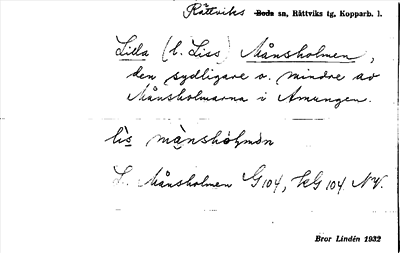 Rättviks Boda sn, Rättviks tg, Kopparb. l.
Lilla (l. Liss) Månsholmen,
den sydligare o. mindre av
Månsholmarna i Amungen.
lis mànshòlmòn
L. Månsholmen G104, HG 104 NV.
Bror Lindén 1932